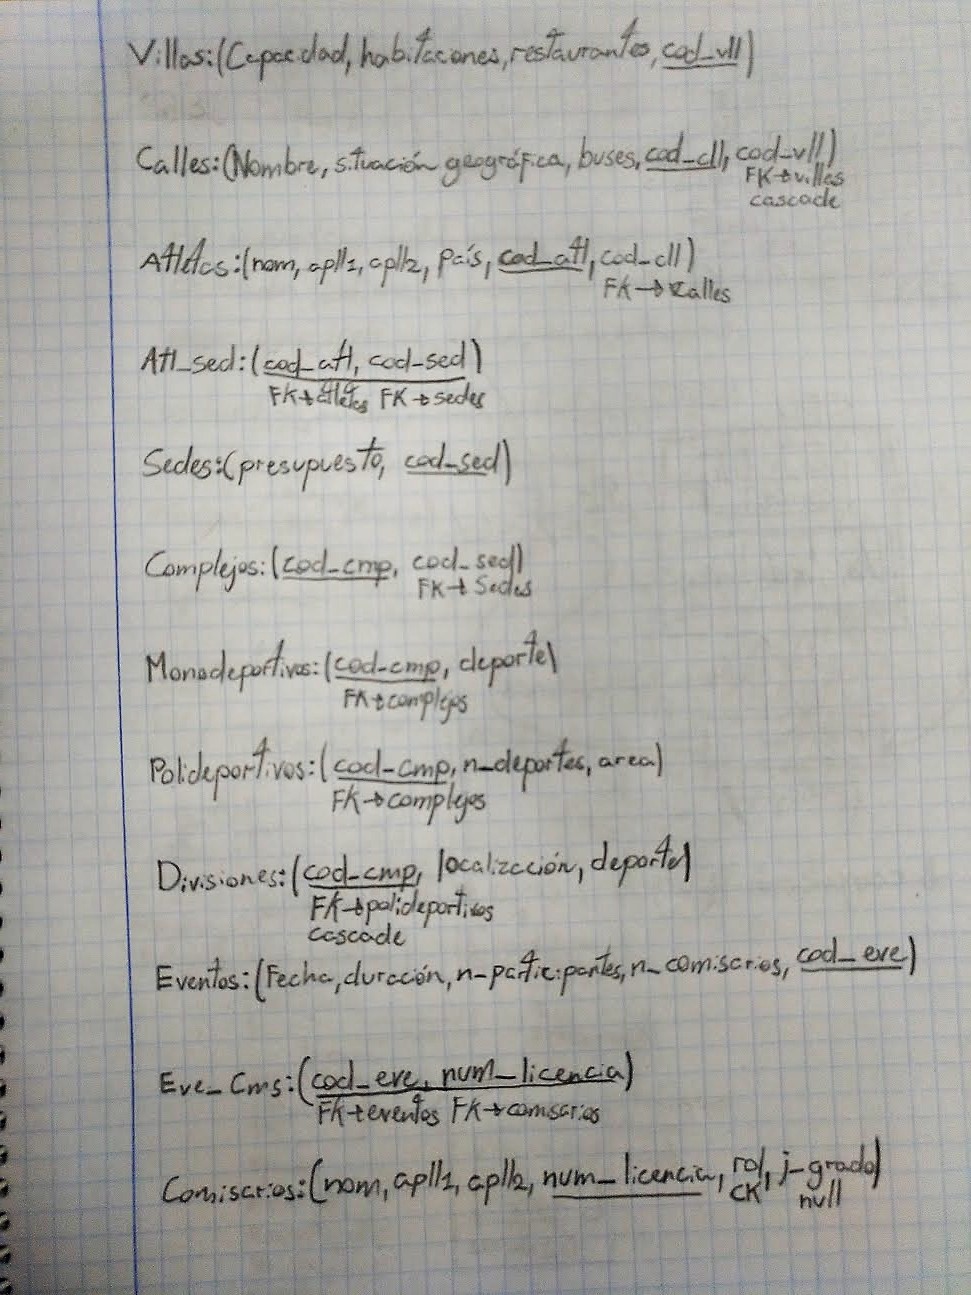 Villas:(Capacidad, habitaciones, restaurantes, cod_vll)
Calles:(Nombre, situación geográfica, buses, cod_cll, cod_vll)
FK→villas
cascade
Atletas:(nom, apll1, apll2, país, cod_atl, cod_cll)
FK→Calles
Atl_sed:(cod_atl, cod_sed)
FK→atletas FK→sedes
Sedes:(presupuesto, cod_sed)
Complejos:(cod_cmp, cod_sed)
FK→Sedes
Monodeportivos:(cod_cmp, deporte)
FK→complejos
Polideportivos:(cod_cmp, n_deportes, area)
FK→complejos
Divisiones:(cod_cmp, localizción, deporte)
FK→polideportivos
cascade
Eventos:(Fecha, duración, n_participantes, n_comisarios, cod_eve)
Eve_Cms:(cod_eve, num_licencia)
FK→eventos FK→comisarios
Comisarios:(nom, apll1, apll2, num_licencia, rol, j_grado)
CK null